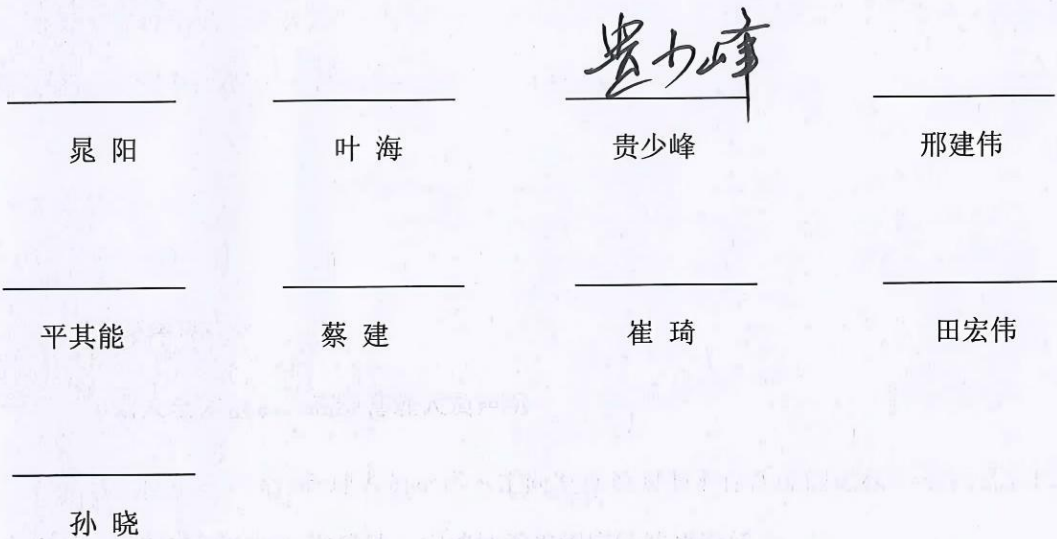 贵少峰
晁 阳 叶 海 贵少峰 邢建伟
平其能 蔡 建 崔 琦 田宏伟
孙 晓